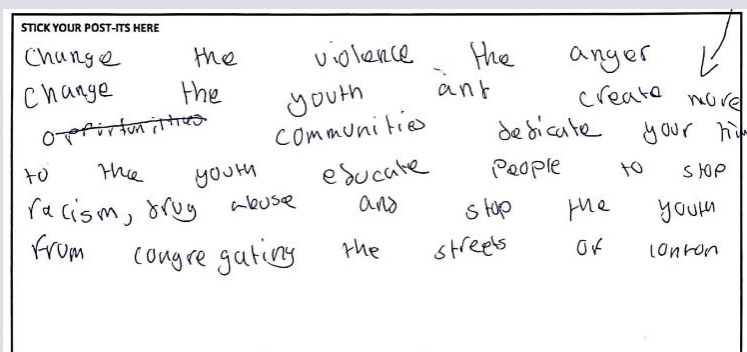 STICK YOUR POST-ITS HERE
Change the violence the anger
Change the youth and create more
opportunities communities dedicate your
to the youth educate People to stop
racism, drug abuse and stop the youth
From congregating the streets of london